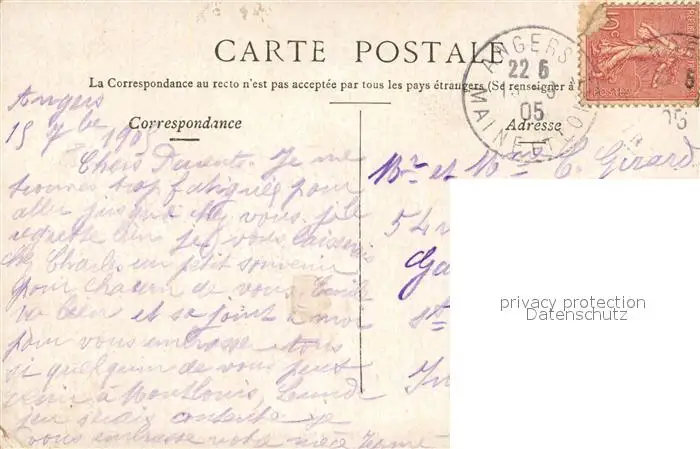 CARTE POSTALE
La Correspondance au recto n'est pas acceptée par tous les pays étrangers (Se renseigner à
Correspondance
Adresse
ANGERS
22 6
05
MAINE ET LOI
POSTES
Angers
15 7bre 1905
Chers Parents. Je me
trouve trop fatiguée pour
aller jusque chez vous. je le
regrette bien je vous laisserais
chez Charles un petit souvenir
pour chacun de vous. Emile
va bien et se joint à moi
pour vous embrasser tous
si quelqu'un de vous peut
venir à Montlouis, Lundi
je serais contente je
vous embrasse votre nièce Jeanne
Mr et Mme C. Girard
54
Ga
st
privacy protection
Datenschutz